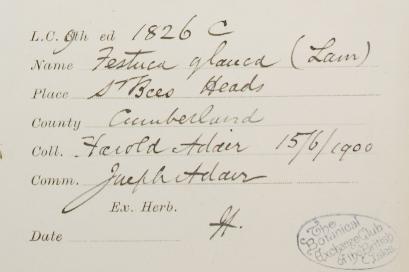 L.C. 9th ed 1826 C
Name Festuca glauca (Lam)
Place St Bees Heads
County Cumberland
Coll. Harold Adair 15/6/1900
Comm. Joseph Adair
Ex. Herb.
Date H.
The
Botanical
Exchange Club
of the British
Isles